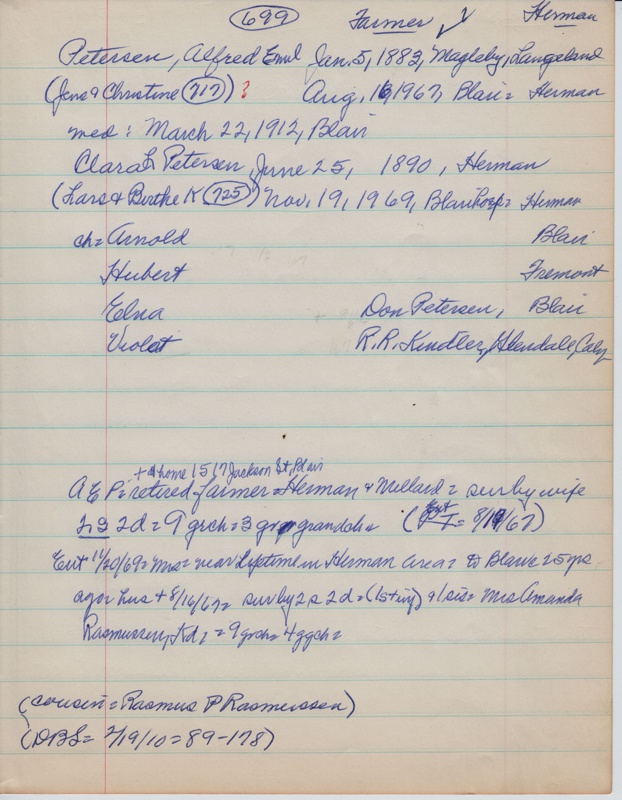 699 Farmer ✓ Herman
Petersen, Alfred Emil Jan. 5, 1883, Magleby, Langeland
(Jens & Christine (717)) ? Aug. 16, 1967, Blair = Herman
med: March 22, 1912, Blair
Clara L Petersen, June 25, 1890, Herman
(Lars & Birthe K (725)) Nov. 19, 1969, Blair hosp = Herman
ch = Arnold Blair
Hubert Fremont
Edna Don Petersen, Blair
Violet R.R. Kindler, Glendale, Caly
+ @ home 1517 Jackson St, Blair
A E P = retired farmer = Herman & = surv by wife
2s 2d = 9 grch = 3 gr grandch = (Ent = 8/19/67)
Ent 11/20/69 = Mrs = near lifetime in Herman area = to Blair 25 yrs
ago = hus + 8/16/67 = surv by 2s 2d = & 1 sis = Mrs Amanda
Rasmussen, Kd; = 9 grch = 4 ggch =
(cousin = Rasmus P Rasmussen)
(DBS = 2/19/10 = 89-178)